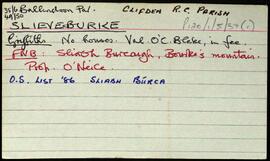 35/6 Ballindoon Par. CLIFDEN R.C. PARISH
49/50 P.120/1/5/50 (i)
SLIEVEBURKE
Griffith: No houses. Val O'C. Blake, in fee.
FNB: Sliabh Burcaugh, Bourke's mountain.
Prop. O'Neice.
O.S. LIST '86 SLIABH BÚRCA